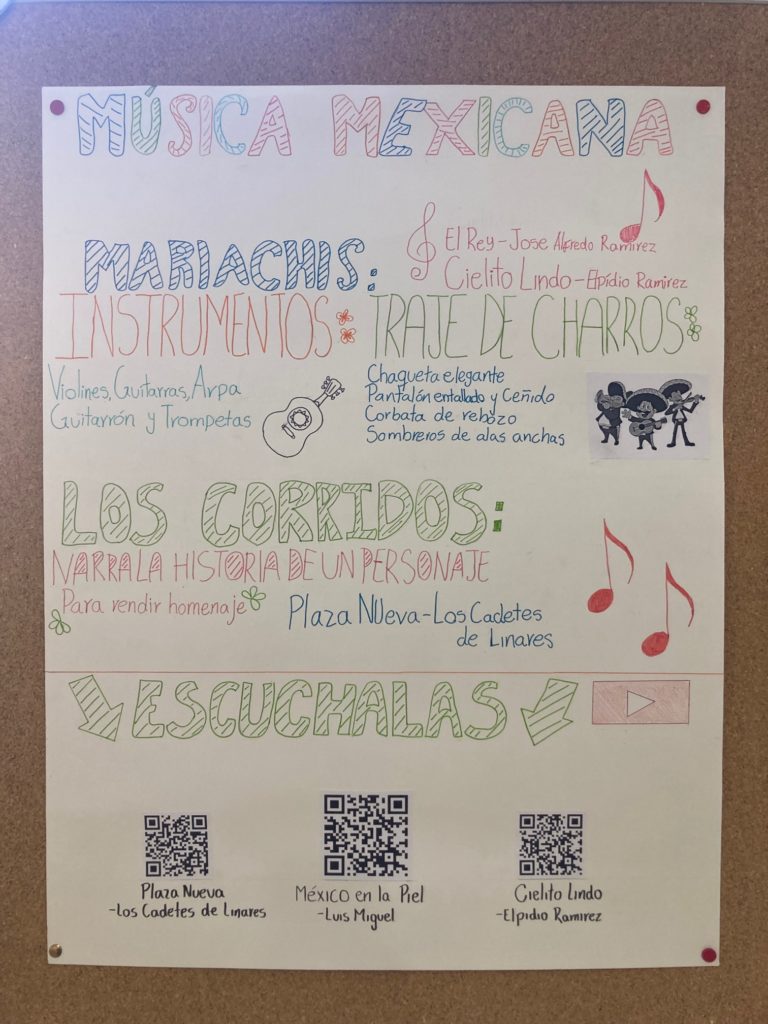 MÚSICA MEXICANA
MARIACHIS:
El Rey - Jose Alfredo Ramirez
Cielito Lindo - Elpídio Ramirez
INSTRUMENTOS:
Violines, Guitarras, Arpa
Guitarrón y Trompetas
TRAJE DE CHARROS:
Chaqueta elegante
Pantalón entallado y Ceñido
Corbata de rebozo
Sombreros de alas anchas
LOS CORRIDOS:
NARRA LA HISTORIA DE UN PERSONAJE
Para rendir homenaje
Plaza NUeva - Los Cadetes
de Linares
ESCUCHALAS
Plaza Nueva
-Los Cadetes de Linares
México en la Piel
-Luis Miguel
Cielito Lindo
-Elpidio Ramirez